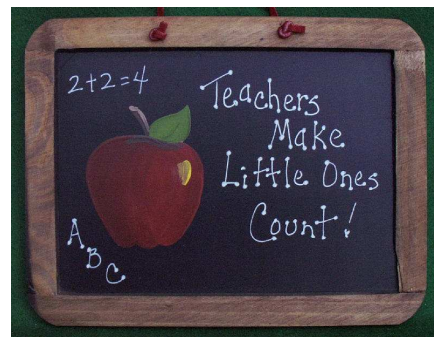 2+2=4
Teachers
Make
Little Ones
Count!
A
B
C